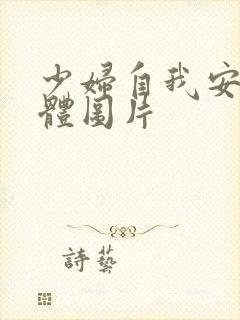 少婦自我安
體圖片
詩藝